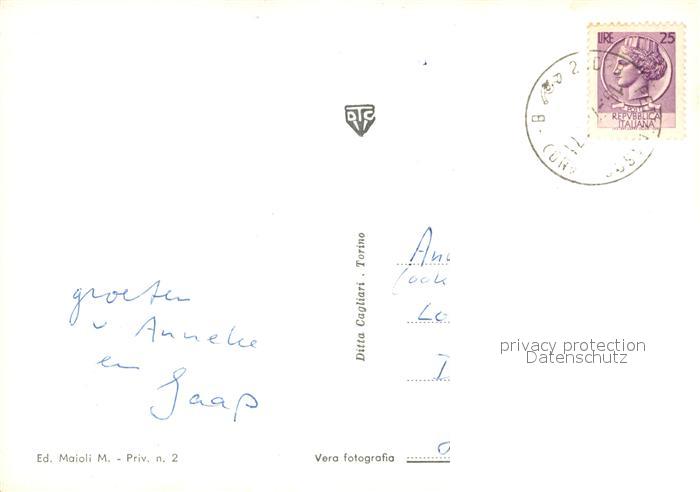 LIRE 25
POSTE
REPVBBLICA
ITALIANA
DTC
Ditta Cagliari . Torino
groeten
v Anneke
en
Jaap
privacy protection
Datenschutz
Ed. Maioli M. - Priv. n. 2
Vera fotografia